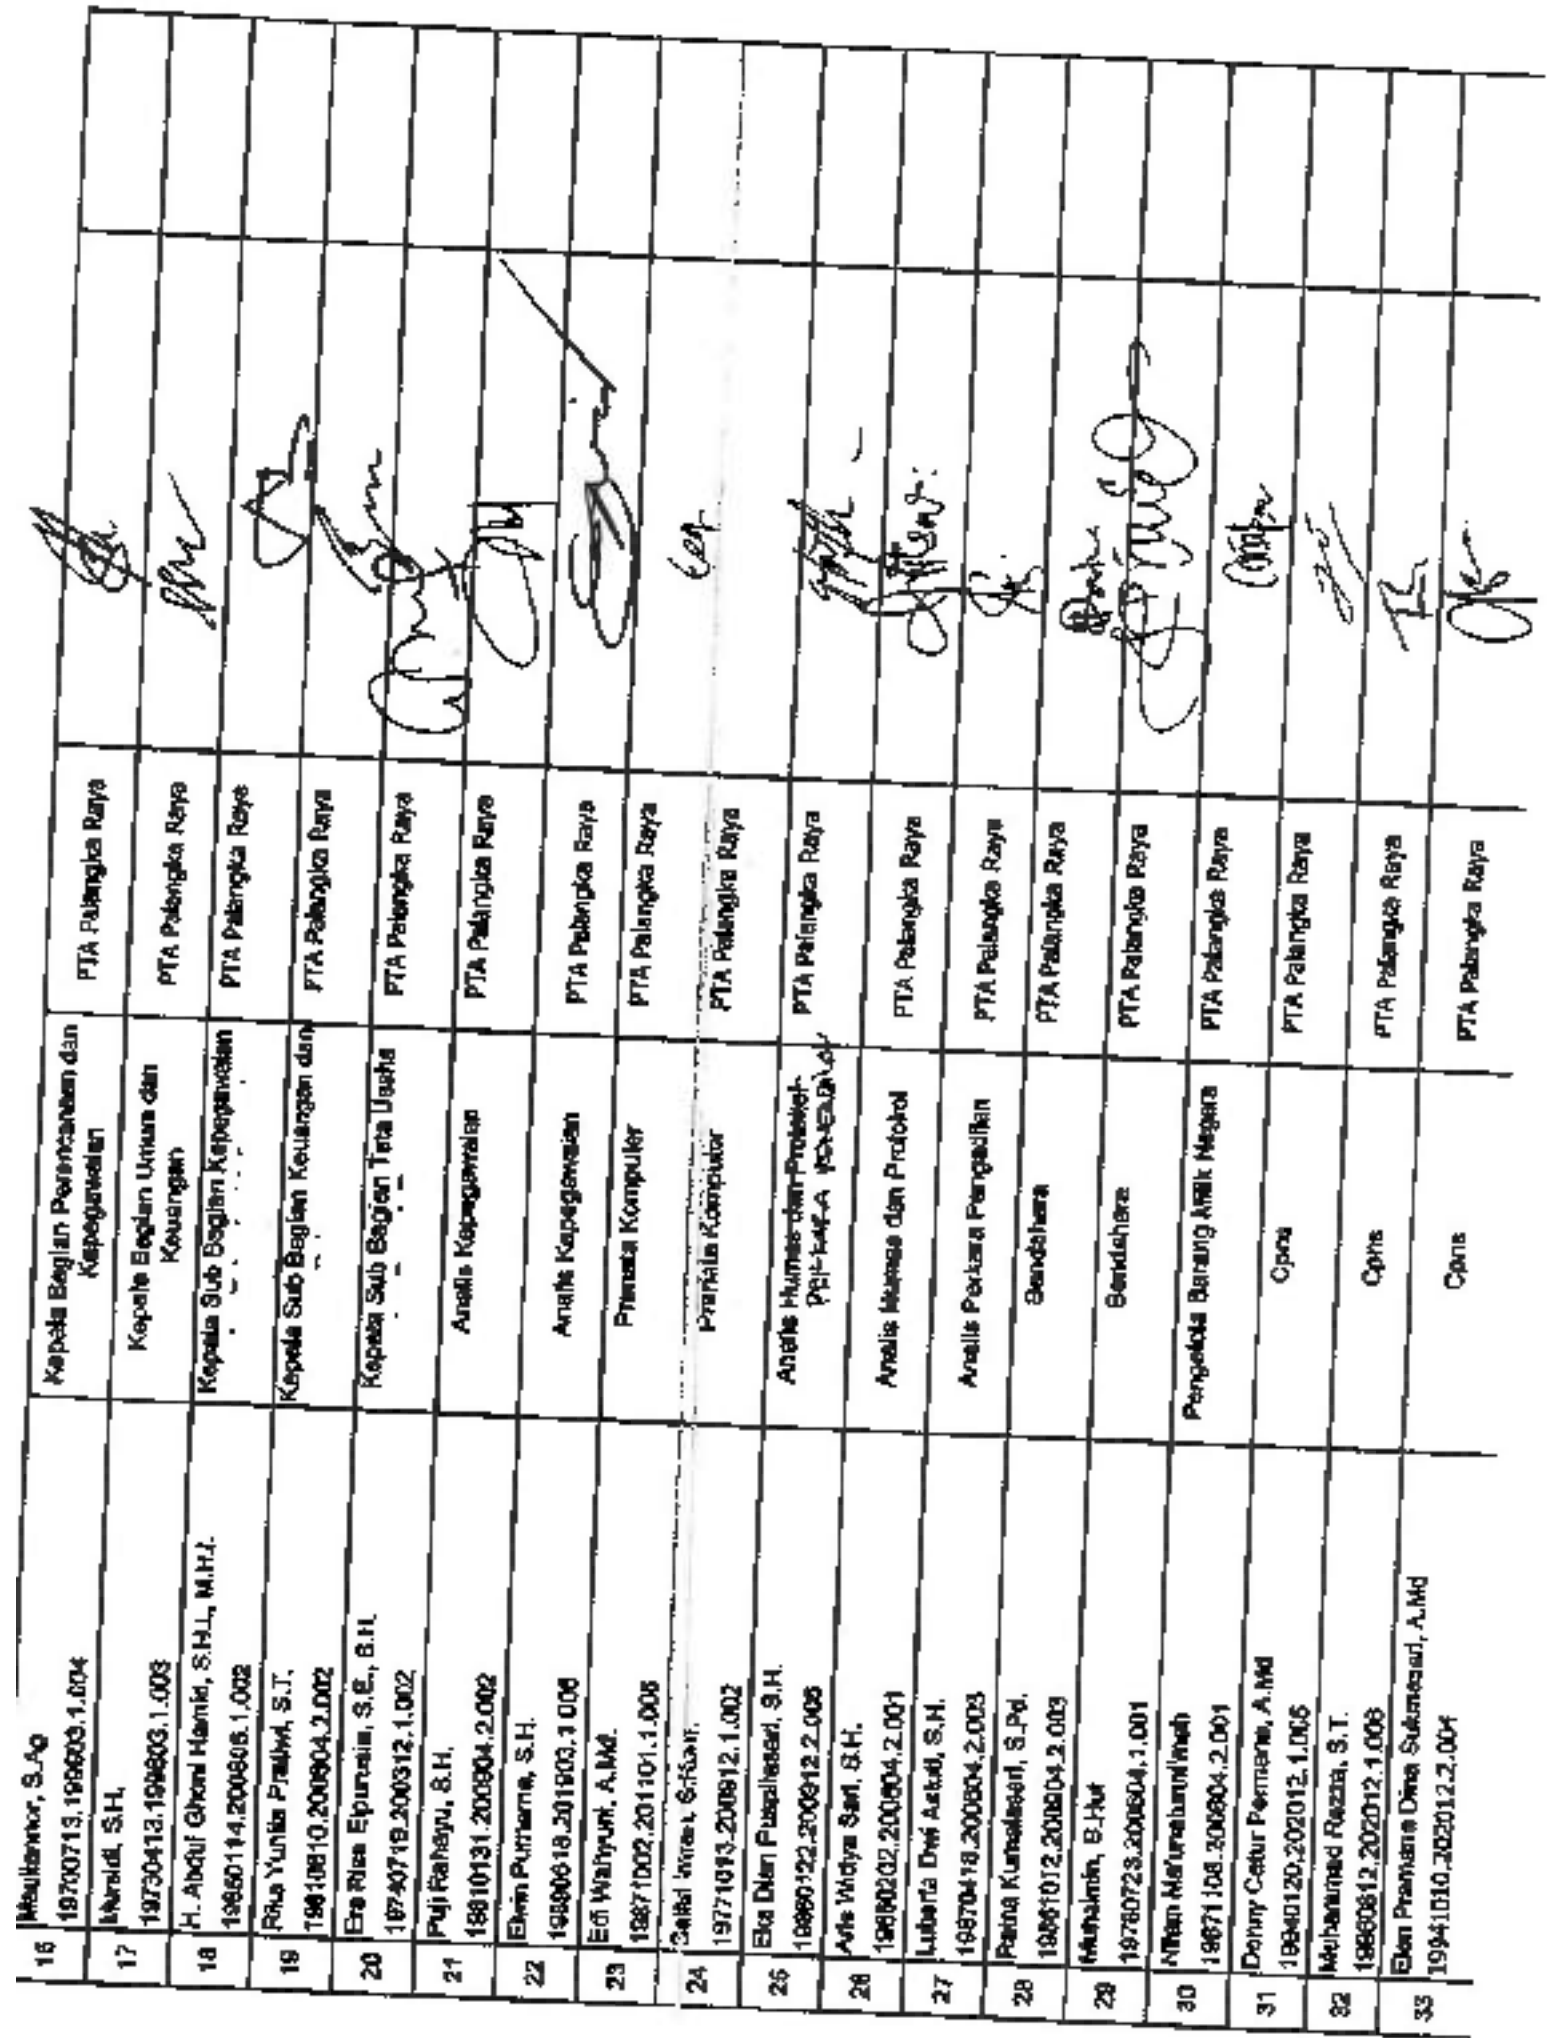 16
Maulianor, S.Ag
19700713.199903.1.004
Kepala Bagian Perencanaan dan
Kepegawaian
PTA Palangka Raya
17
Mursidi, S.H,
19730413.199803.1.003
Kepala Bagian Umum dan
Keuangan
PTA Palangka Raya
18
H. Abdul Ghoni Hamid, S.H.I., M.H.I.
19850114.200805.1.002
Kepala Sub Bagian Kepegawaian
PTA Palangka Raya
19
Rika Yunita Pratiwi, S.T,
19810810.200904.2.002
Kepala Sub Bagian Keuangan dan
PTA Palangka Raya
20
Era Risa S.E., S.H.
19740719.200312.1.002
Kepala Sub Bagian Tata Usaha
PTA Palangka Raya
21
Puji Rahayu, S.H,
19810131.200904.2.002
Analis Kepegawaian
PTA Palangka Raya
22
Elwin Purnama, S.H.
19890618.201903.1.006
Analis Kepegawaian
PTA Palangka Raya
23
Edi Wahyuni, A.Md.
19871002.201101.1.008
Pranata Komputer
PTA Palangka Raya
24
19771013.200912.1.002
Pranata Komputer
PTA Palangka Raya
25
Eka Dian Puspitasari, S.H.
19860122.200912.2.006
Analis Humas dan Protokol
PTA Palangka Raya
26
Arie Widya Sari, S.H.
19850202.200904.2.001
Analis Humas dan Protokol
PTA Palangka Raya
27
Luberta Dwi Astuti, S.H.
19870418.200904.2.003
Analis Perkara Pengadilan
PTA Palangka Raya
28
Ratna Kumalasari, S.Pd.
19861012.200904.2.003
Bendahara
PTA Palangka Raya
29
Muhaimin, S.Hut
19760723.200604.1.001
Bendahara
PTA Palangka Raya
30
19671108.200904.2.001
Pengelola Barang Milik Negara
PTA Palangka Raya
31
Denny Catur Permana, A.Md
19940120.202012.1.005
Cpns
PTA Palangka Raya
32
Muhammad Razzia, S.T.
19960812.202012.1.009
Cpns
PTA Palangka Raya
33
Elen Pramana Dina Sukmasari, A.Md
19941010.202012.2.004
Cpns
PTA Palangka Raya